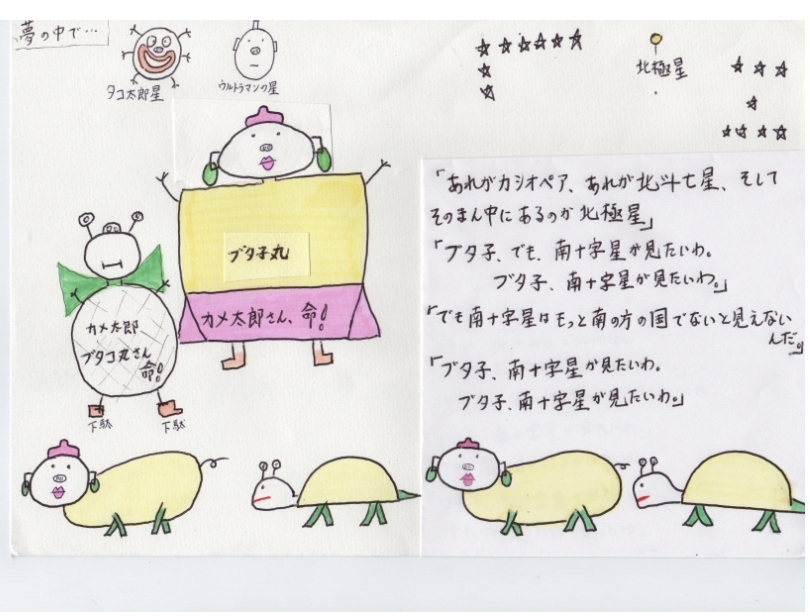 夢の中で…
タコ太郎星
ウルトラマンの星
北極星
ブタ子丸
カメ太郎さん、命!
カメ太郎
ブタコ丸さん
命!
下駄
下駄
「あれがカシオペア、あれが北斗七星、そして
そのまん中にあるのが北極星」
「ブタ子、でも、南十字星が見たいわ。
ブタ子、南十字星が見たいわ。」
「でも南十字星はもっと南の方の国でないと見えない
んだ。」
「ブタ子、南十字星が見たいわ。
ブタ子、南十字星が見たいわ。」